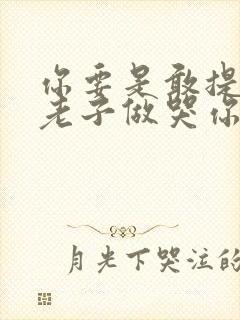 你要是敢提
老子做哭你
月光下哭泣的